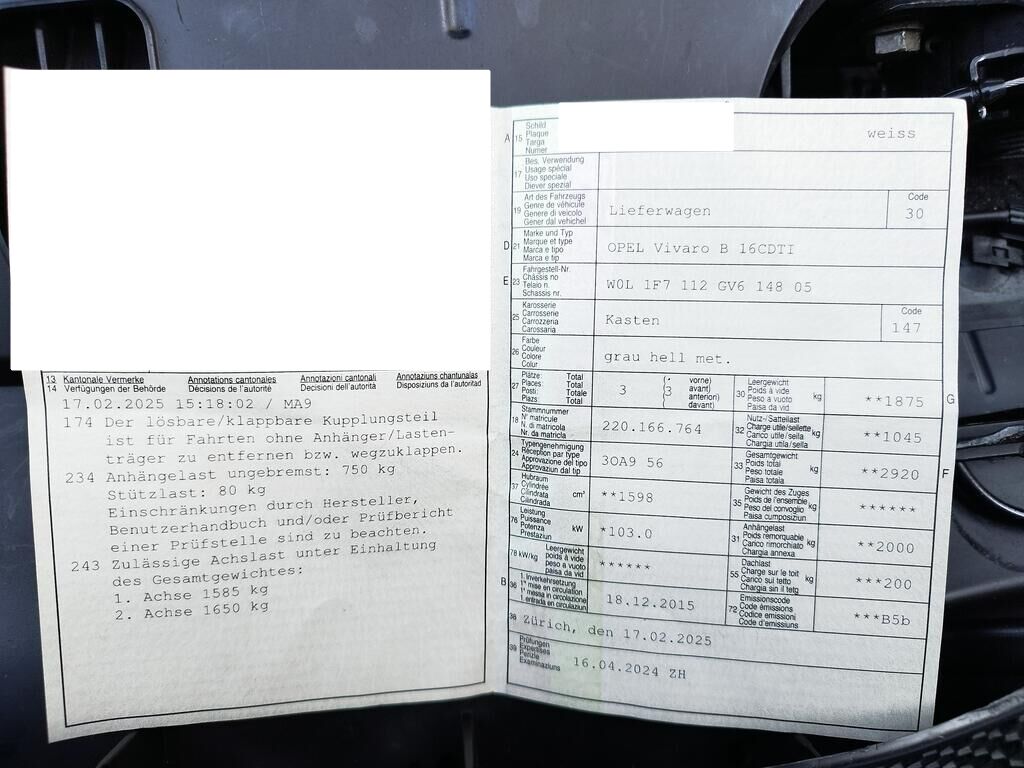 13 Kantonale Vermerke Annotations cantonales Annotazioni cantonali Annotaziuns chantunalas
14 Verfügungen der Behörde Décisions de l'autorité Decisioni dell'autorità Disposiziuns da l'autoritad
17.02.2025 15:18:02 / MA9
174 Der lösbare/klappbare Kupplungsteil
ist für Fahrten ohne Anhänger/Lasten-
träger zu entfernen bzw. wegzuklappen.
234 Anhängelast ungebremst: 750 kg
Stützlast: 80 kg
Einschränkungen durch Hersteller,
Benutzerhandbuch und/oder Prüfbericht
einer Prüfstelle sind zu beachten.
243 Zulässige Achslast unter Einhaltung
des Gesamtgewichtes:
1. Achse 1585 kg
2. Achse 1650 kg
A 15 Schild
Plaque
Targa
Numer
weiss
17 Bes. Verwendung
Usage spécial
Uso speciale
Diever spezial
19 Art des Fahrzeugs
Genre de véhicule
Genere di veicolo
Gener dal vehichel
Lieferwagen
Code
30
D 21 Marke und Typ
Marque et type
Marca e tipo
Marca e tip
OPEL Vivaro B 16CDTI
E 23 Fahrgestell-Nr.
Châssis no
Telaio n.
Schassis nr.
W0L 1F7 112 GV6 148 05
25 Karosserie
Carrosserie
Carrozzeria
Carossaria
Kasten
Code
147
26 Farbe
Couleur
Colore
Colur
grau hell met.
27 Plätze: Total
Places: Total
Posti: Totale
Plazs: Total
3
(* vorne)
(3 avant)
( anteriori)
( davant)
30 Leergewicht
Poids à vide
Peso a vuoto
Paisa da vid
kg
**1875
G
18 Stammnummer
N° matricule
N. di matricola
Nr. da matricla
220.166.764
32 Nutz-/Sattellast
Charge utile/sellette
Carico utile/sella
Chargia utila/sella
kg
**1045
24 Typengenehmigung
Réception par type
Approvazione del tipo
Approvaziun dal tip
3OA9 56
33 Gesamtgewicht
Poids total
Peso totale
Paisa totala
kg
**2920
F
37 Hubraum
Cylindrée
Cilindrata
Cilindrada
cm³
**1598
35 Gewicht des Zuges
Poids de l'ensemble
Peso del convoglio
Paisa cumposiziun
kg
******
76 Leistung
Puissance
Potenza
Prestaziun
kW
*103.0
31 Anhängelast
Poids remorquable
Carico rimorchiato
Chargia annexa
kg
**2000
78 kW/kg Leergewicht
poids à vide
peso a vuoto
paisa da vid
*****
55 Dachlast
Charge sur le toit
Carico sul tetto
Chargia sin il tetg
kg
***200
B 36 1. Inverkehrsetzung
1re mise en circulation
1a messa in circolazione
1. entrada en circulaziun
18.12.2015
72 Emissionscode
Code émissions
Codice emissioni
Code d'emissiuns
***B5b
38 Zürich, den 17.02.2025
39 Prüfungen
Expertises
Perizie
Examinaziuns
16.04.2024 ZH